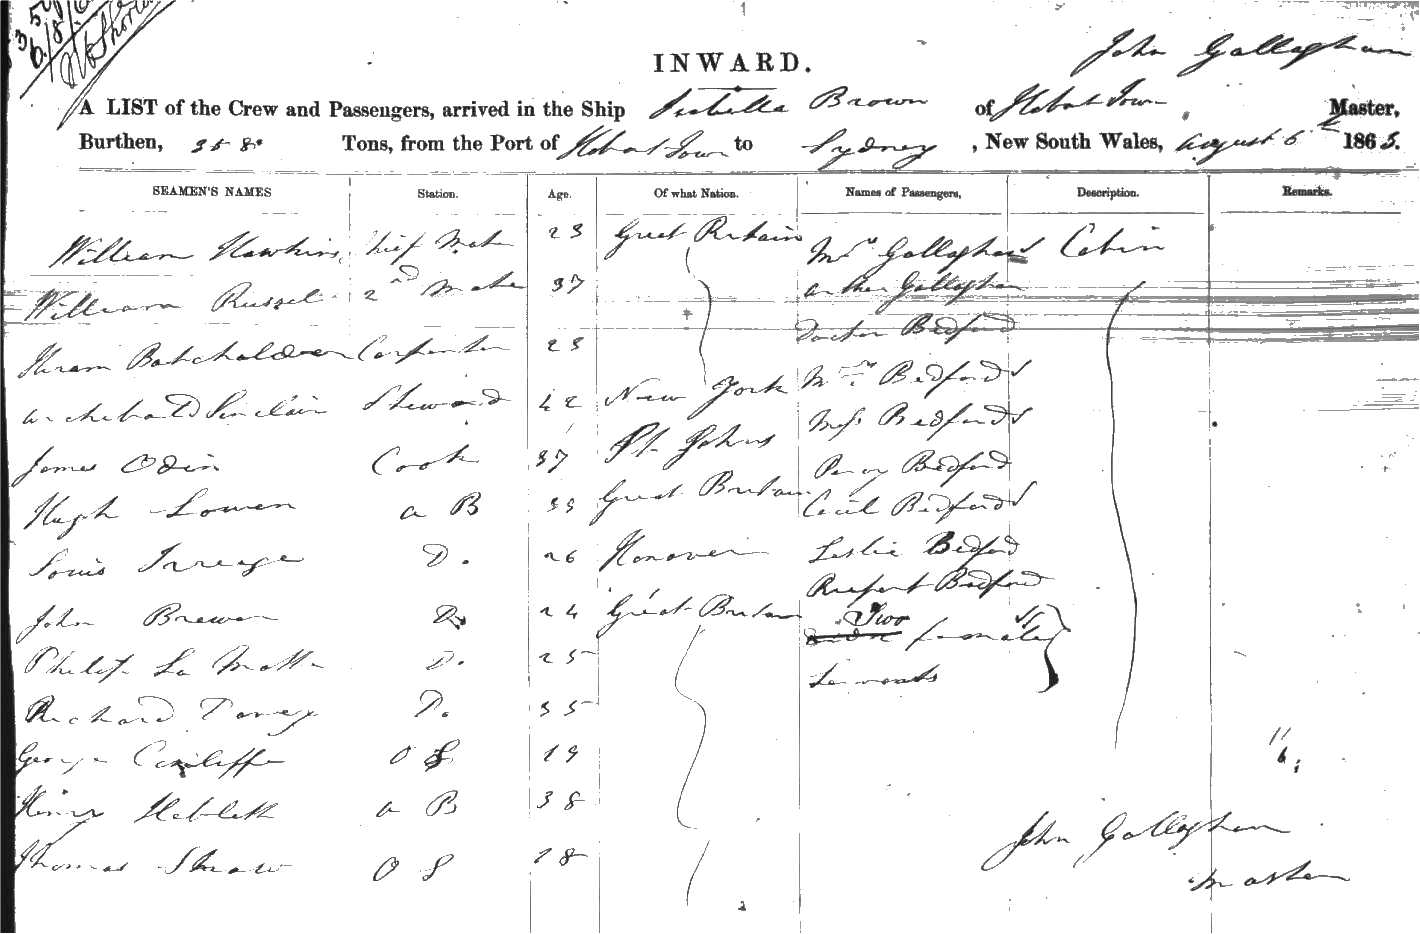 INWARD.
John Gallaghan
A LIST of the Crew and Passengers, arrived in the Ship Isabella Brown of Hobart Town Master,
Burthen, 358 Tons, from the Port of Hobart Town to Sydney, New South Wales, August 6th 1863.
SEAMEN'S NAMES Station. Age. Of what Nation. Names of Passengers, Description. Remarks.
William Hawkins Chief Mate 23 Great Britain Mrs Gallaghan Cabin
William Russel 2nd Mate 37 Arther Gallaghan
Doctor Bedford
Hiram Batcholder Carpenter 23
Mrs Bedford
Archebald Sinclair Steward 42 New York
Miss Bedford
James Odin Cook 37 St. Johns Percy Bedford
Hugh Lowen A B 39 Great Britain Cecil Bedford
Louis D. 26 Hanover Leslie Bedford
Rupert Bedford
John Brewer D. 24 Great Britain Two females
Philip La Motte D. 25 Servants
Richard D. 35
George O S 19 11
6
Henry A B 38
John Gallaghan
Thomas Shaw O S 18
Master